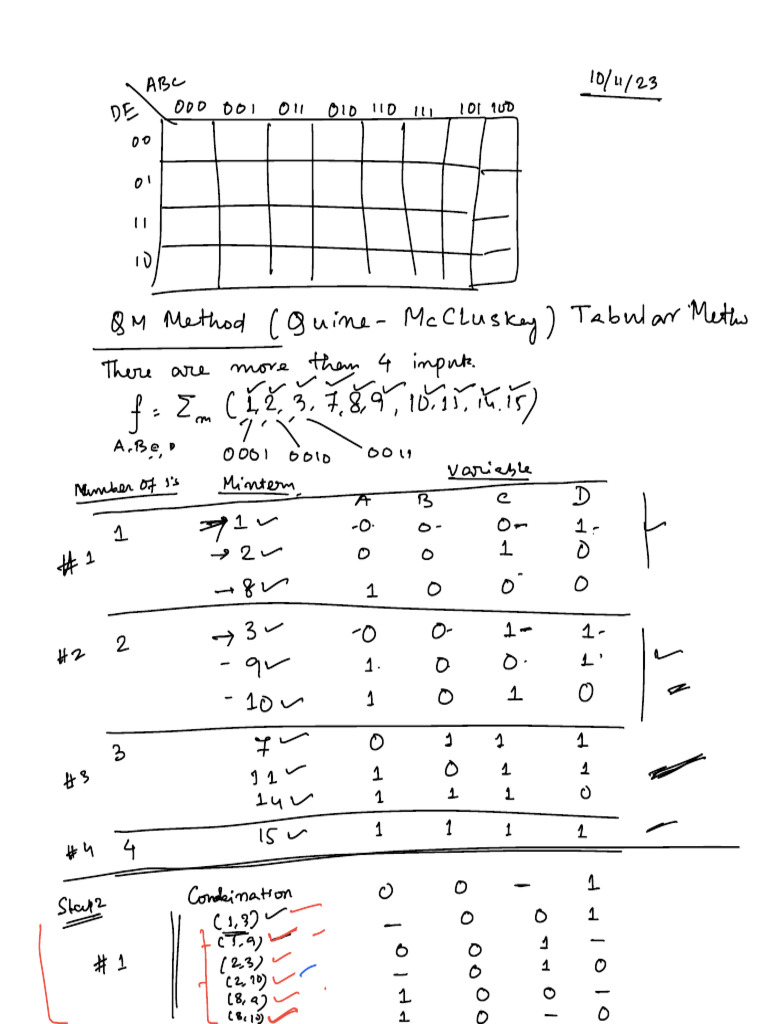 10/11/23
ABC
DE 000 001 011 010 110 111 101 100
00
01
11
10
QM Method (Quine - McCluskey) Tabular Metho
There are more then 4 input.
f = Σm (1, 2, 3, 7, 8, 9, 10, 11, 14, 15)
A, B, C, D 0001 0010 0011
Number of 1's Minterm Variable
A B C D
#1 1 → 1 ✓ 0 0 0 1
→ 2 ✓ 0 0 1 0
→ 8 ✓ 1 0 0 0
#2 2 → 3 ✓ 0 0 1 1
- 9 ✓ 1 0 0 1
- 10 ✓ 1 0 1 0
#3 3 7 ✓ 0 1 1 1
11 ✓ 1 0 1 1
14 ✓ 1 1 1 0
#4 4 15 ✓ 1 1 1 1
Combination 0 0 - 1
(1,3) ✓ - 0 0 1
(1,9) ✓ 0 0 1 -
#1 (2,3) ✓ - 0 1 0
(2,10) ✓ 1 0 0 -
(8,9) ✓ 1 0 - 0
(8,10) ✓